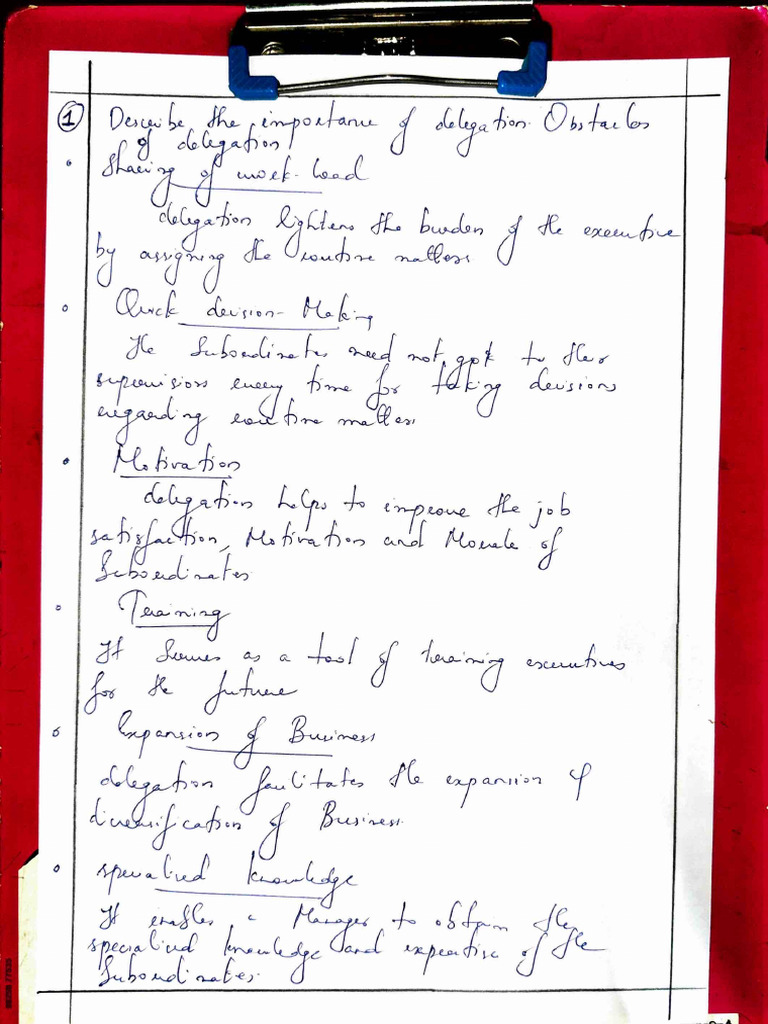 1 Describe the importance of delegation. Obstacles
of delegation
Sharing of work-load
delegation lightens the burden of the executive
by assigning the routine matters
Quick decision-Making
The Subordinates need not go to their
supervisors every time for taking decisions
regarding routine matters
Motivation
delegation helps to improve the job
satisfaction, Motivation and Morale of
Subordinates
Training
It Serves as a tool of training executives
for the future
Expansion of Business
delegation facilitates the expansion &
diversification of Business.
specialised knowledge
It enables a Manager to obtain the
specialised knowledge and expertise of the
Subordinates.